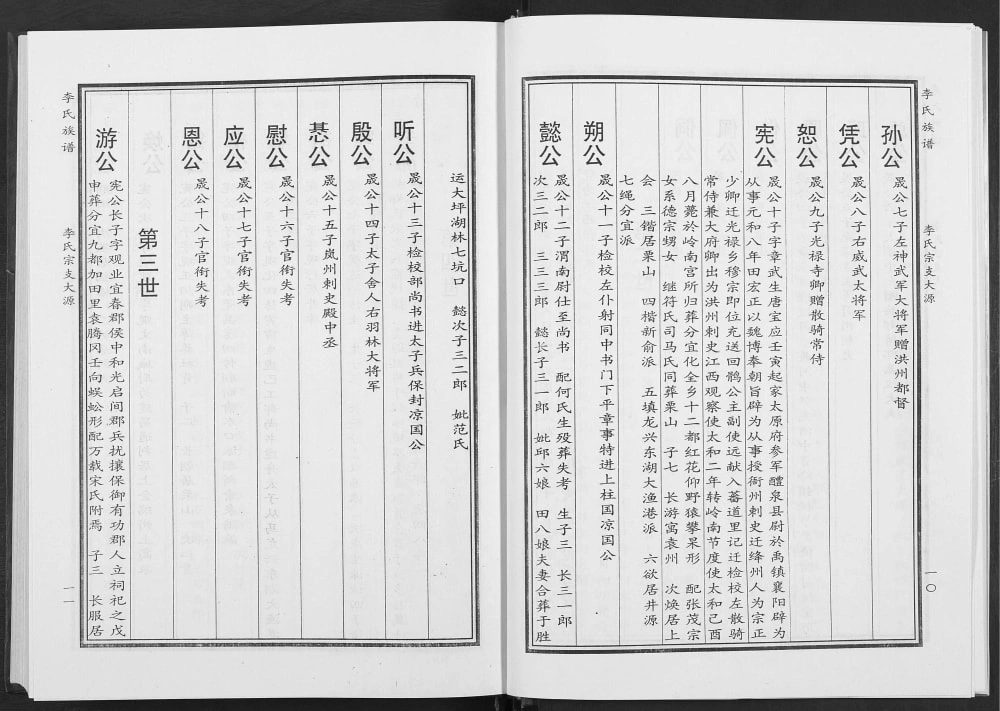 李氏族谱
李氏宗支大源
一〇
孙公
晟公七子左神武军大将军赠洪州都督
凭公
晟公八子右威武太将军
恕公
晟公九子光禄寺卿赠散骑常侍
宪公
晟公十子字章武生唐宝应壬寅起家太原府参军醴泉县尉於禹镇襄阳辟为
从事元和八年田宏正以魏博奉朝旨辟为从事授衢州刺史迁绛州人为宗正
少卿迁光禄乡穆宗即位充送回鹘公主副使远献入蕃道里记迁检校左散骑
常侍兼大府卿出为洪州刺史江西观察使太和二年转岭南节度使太和己酉
八月薨於岭南宫所归葬分宜化全乡十二都红花仰野猿攀果形 配张茂宗
女系德宗甥女 继符氏司马氏同葬栗山 子七 长游寓袁州 次焕居上
会 三锴居栗山 四楷新俞派 五填龙兴东湖大渔港派 六欲居井源
七绳分宜派
朔公
晟公十一子检校左仆射同中书门下平章事特进上柱国凉国公
懿公
晟公十二子渭南尉仕至尚书 配何氏生殁葬失考 生子三 长三一郎
次三二郎 三三三郎 懿长子三一郎 妣邱六娘 田八娘夫妻合葬于胜
运大坪湖林七坑口 懿次子三二郎 妣范氏
听公
晟公十三子检校部尚书进太子兵保封凉国公
殷公
晟公十四子太子舍人右羽林大将军
惎公
晟公十五子岚州刺史殿中丞
慰公
晟公十六子官衔失考
应公
晟公十七子官衔失考
恩公
晟公十八子官衔失考
第三世
游公
宪公长子字观业宜春郡侯中和光启间郡兵扰攘保御有功郡人立祠祀之戊
申葬分宜九都加田里袁腾冈壬向蜈蚣形配万载宋氏附焉 子三 长服居
李氏族谱
李氏宗支大源
一一